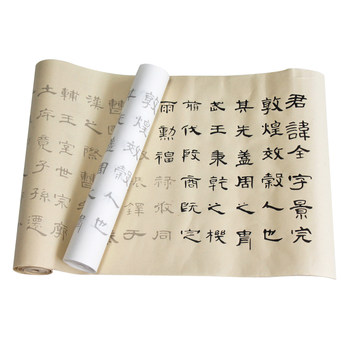 君諱全字景完
敦煌效穀人也
其先蓋周之胄
武王秉乾之機
翦伐殷商既定
爾勳福祿攸同
敦煌效穀人也
鐸于
漢之際曹
輔王室世宗廓
土斥竟子孫遷